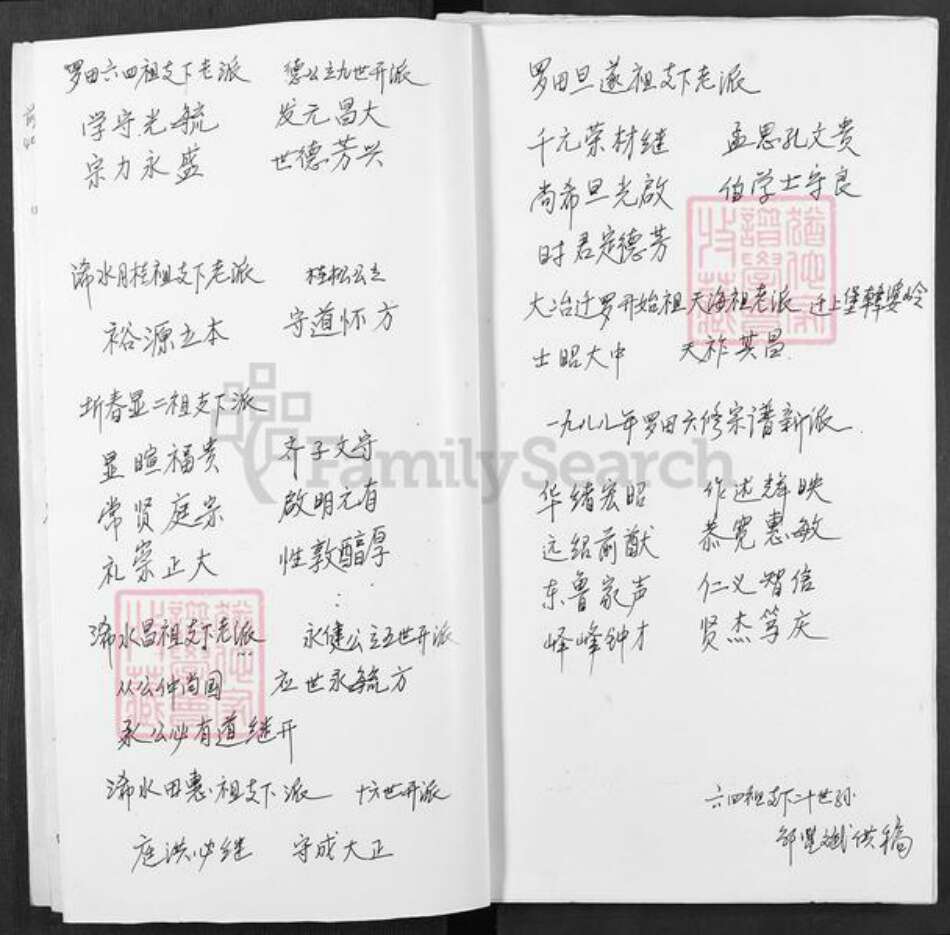 罗田六四祖支下老派 德公立九世开派
学守光毓 发元昌大
宗力永盛 世德芳兴
浠水月桂祖支下老派 桂松公立
裕源立本 守道怀方
圻春显二祖支下派
显暄福贵 齐子文守
常贤庭宗 啟明元有
礼崇正大 性敦醇厚
浠水昌祖支下老派 永健公立五世开派
从公仲尚国 应世永毓方
承公必有道继开
浠水田惠祖支下派 十六世开派
庭洪必继 守成大正
罗田旦遂祖支下老派
千元荣材继 孟思孔文贵
尚希旦光啟 伯学士守良
时君定德芳
大冶迁罗开始祖天海祖老派 迁上堡
士昭大中 天祚其昌
一九八八年罗田六修宗谱新派
华绪宏昭 作述辉映
远绍前猷 恭宽惠敏
东鲁家声 仁义智信
峄峰钟才 贤杰笃庆
六四祖支下二十世孙
供稿
FamilySearch